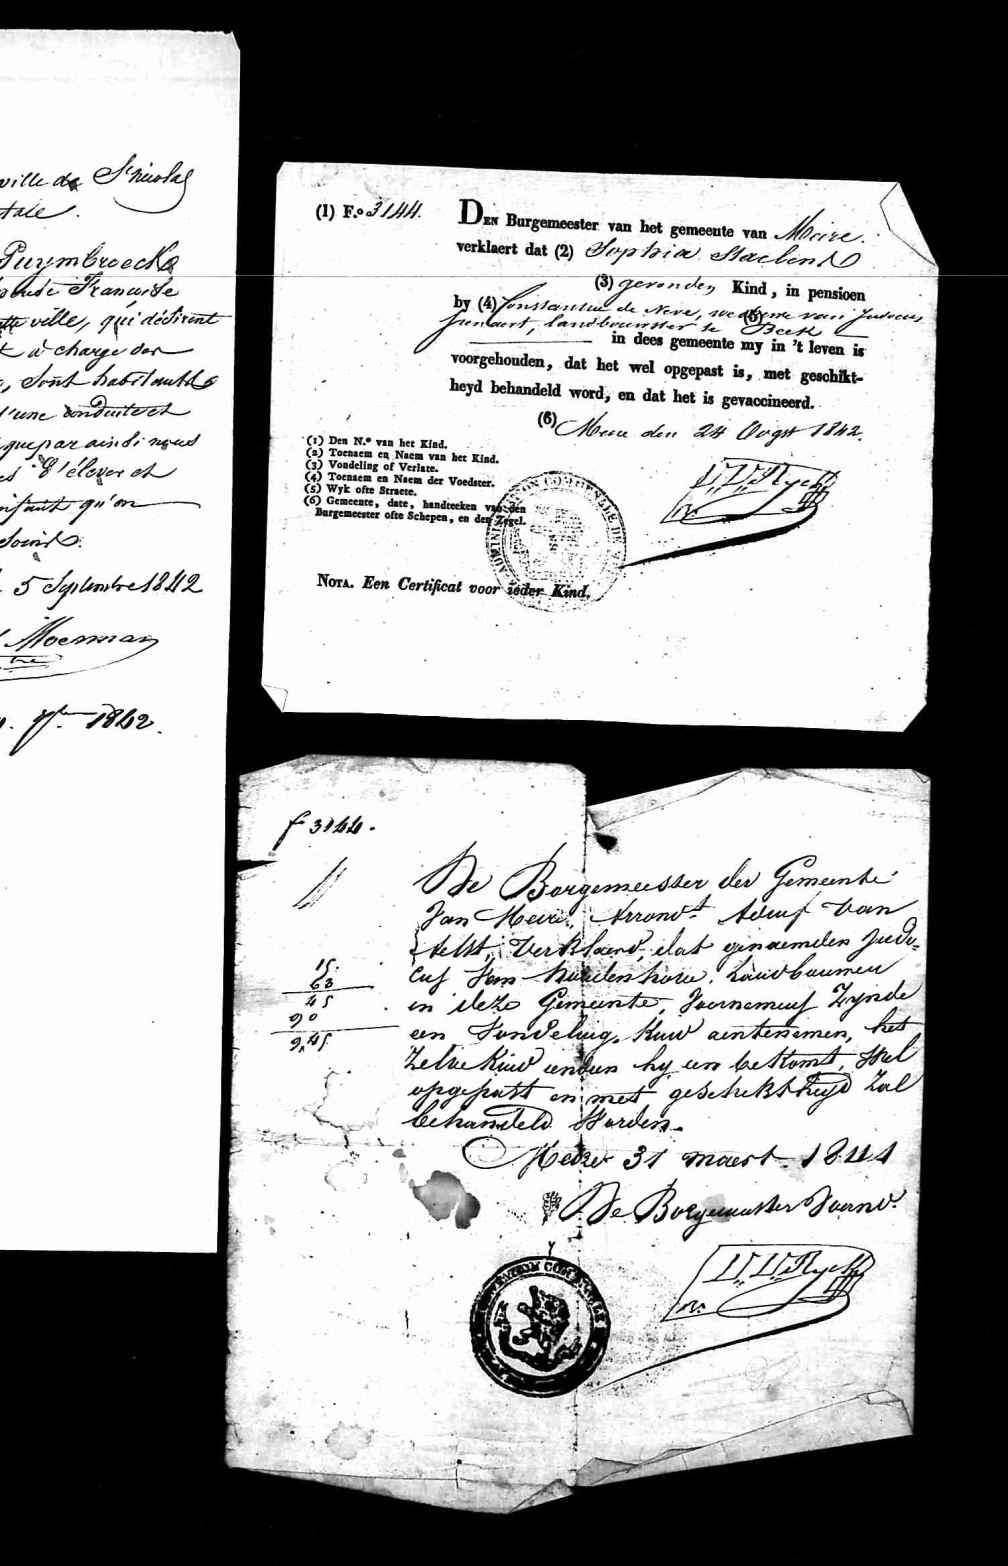 ville de St Nicolas
Puymbroeck
Francoise
ville, qui désirent
à charge des
sont habitants
d'une conduite et
que par ainsi nous
d'élever et
qu'on
5 Septembre 1842
Moerman
7bre 1842.
(1) F.o 3144.
DEN Burgemeester van het gemeente van Meire.
verklaert dat (2) Sophia
(3) gevonden Kind, in pensioen
by (4) Constantia de Neve, weduwe van Judocus
(5)
landbouwster te Beek
in dees gemeente my in 't leven is
voorgehouden, dat het wel opgepast is, met geschikt-
heyd behandeld word, en dat het is gevaccineerd.
(6) Meire den 24 Oogst 1842.
(1) Den N.o van het Kind.
(2) Toenaem en Naem van het Kind.
(3) Vondeling of Verlate.
(4) Toenaem en Naem der Voedster.
(5) Wyk ofte Straete.
(6) Gemeente, date, handteeken van den
Burgemeester ofte Schepen, en den Zegel.
NOTA. Een Certificat voor ieder Kind.
f 3144.
15
63
45
90
9,45
De Borgemeester der Gemeente
Van Meire, Arrondt Van
Aelst, Verklaerd, dat genaemden Judo=
cus Van Landbouwer
in deze Gemeente, Voornemens Zynde
een Vondeling Kind aentenemen, het
Zelve Kind indien hy een bekomt, Wel
opgepast en met geschiktheyd Zal
behandeld Worden.
Meire 31 maert 1841
De Borgemeester Voornd.